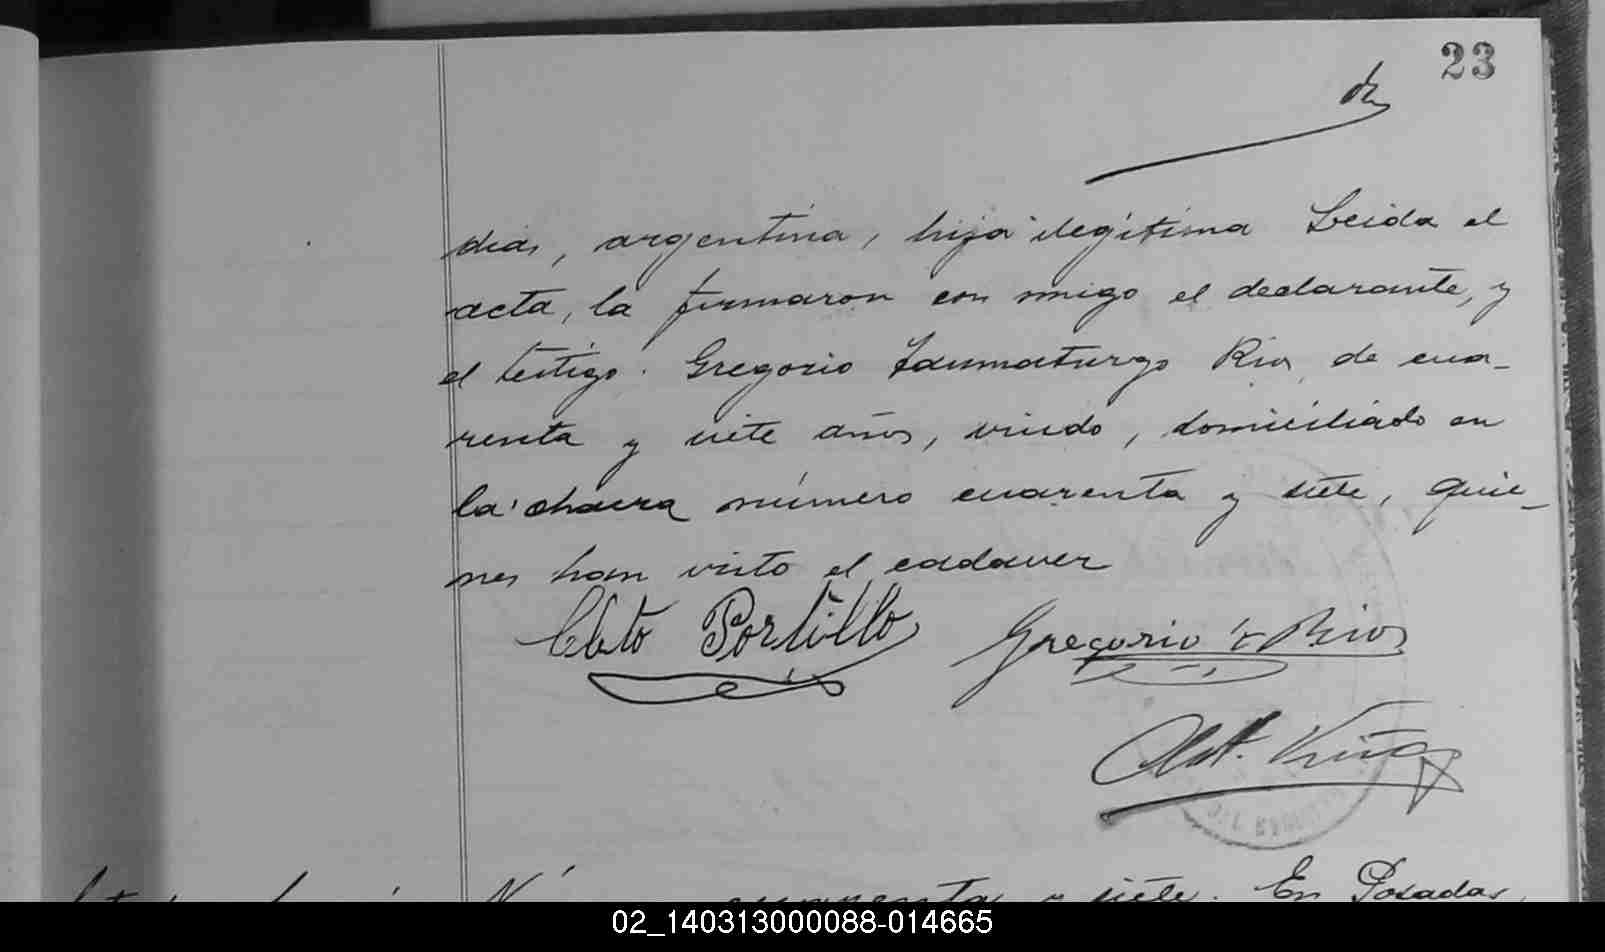 23
dias, argentina, hija ilegítima Leida el
acta, la firmaron con migo el declarante, y
el testigo: Gregorio Taumaturgo Rios, de cua-
renta y siete años, viudo, domiciliado en
la chacra número cuarenta y siete, quie-
nes han visto el cadaver
Cleto Portillo Gregorio T Rios
cuarenta y siete. En Posadas,
02_140313000088-014665